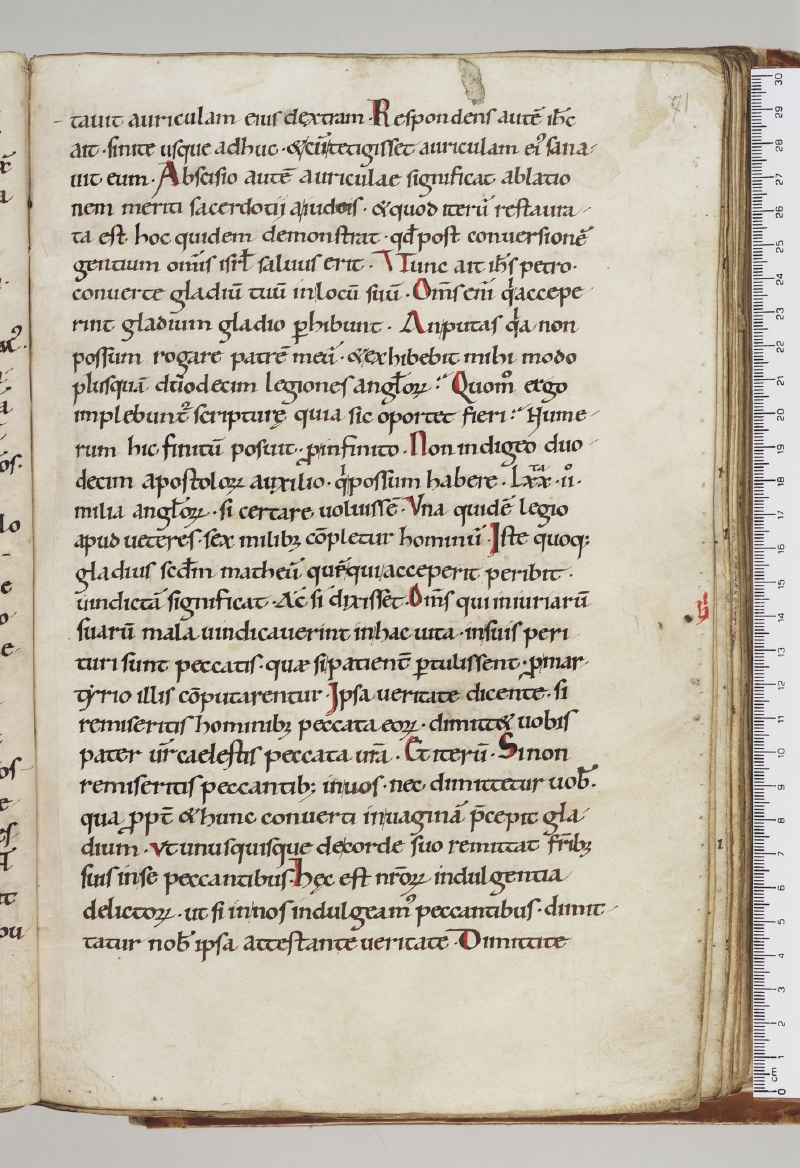 71
tauit auriculam eius dextram. Respondens autē ihc̄
ait. sinite usque adhuc. & cū tetigisset auriculam ei᾿ sana-
uit eum. Abscisio autē auriculae significat ablatio
nem meriti sacerdotii a iudeis. & quod iterū restaura-
ta est hoc quidem demonstrat. qđ post conversionē
gentium omīs isrł saluus erit. Tunc ait ih̄s petro.
converte gladiū tuū in locū suū. Om̄s enī q̇ accepe-
rint gladium gladio ꝑhibunt. An putas q̇a non
possum rogare patrē meū. & exhibebit mihi modo
plusquā duodecim legiones angłoꝝ. Quom̊ ergo
implebunt᷒ scripturę quia sic oportet fieri. Nume-
rum hic finitū posuit. p̄ infinito. Non indigeo duo-
decim apostoloꝝ auxilio. q̇ possum habere. Lxx᷒ta. ii᷒o.
milia angłoꝝ. si certare uoluissē. Vna quidē legio
apud ueteres. sex milibꝫ cōpletur hominū. Iste quoq;
gladius scđm matheū quē qui acceperit peribit.
uindictā significat. Ac si dixisset. Om̄s qui iniuriarū
suarū mala uindicauerint in hac uita. in suis peri
turi sunt peccatis. quæ si patient̄ ꝑtulissent. p̄ mar-
tyrio illis cōputarentur. Ipsa ueritate dicente. si
remiseritis hominibꝫ peccata eoꝝ. dimitt& uobis
pater ur̄ caelestis peccata ur̄a. Et iterū. Si non
remiseritis peccantib; in uos. nec dimittetur uob̄.
qua ꝓpt̄ & hunc converti in uaginā p̄cepit gla-
dium. vt unusquisque de corde suo remittat fr̄ibꝫ
suis in se peccantibus. Hęc est nr̄oꝝ indulgentia
delictoꝝ. ut si in nos indulgeam᾿ peccantibus. dimit-
tatur nob̄ ipsa attestante ueritate. Dimittite